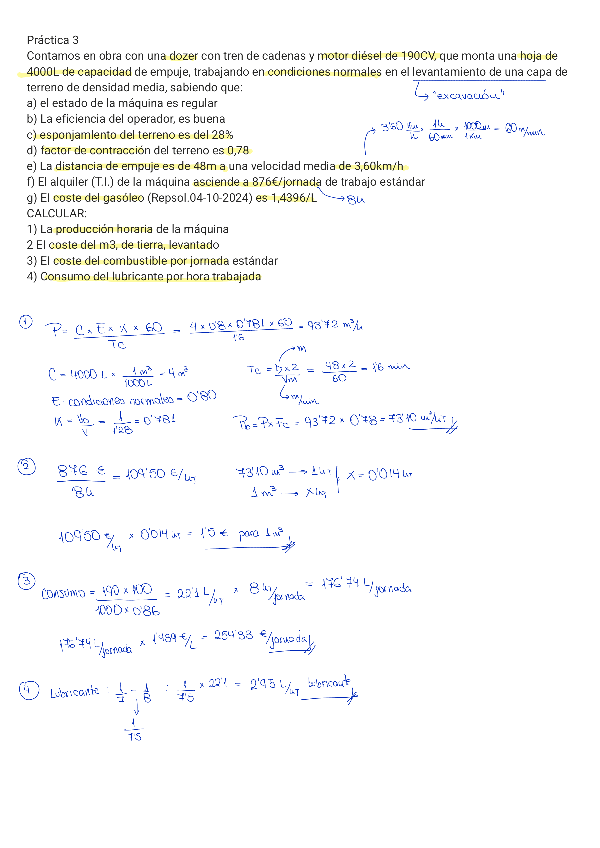 Práctica 3
Contamos en obra con una dozer con tren de cadenas y motor diésel de 190CV, que monta una hoja de
4000L de capacidad de empuje, trabajando en condiciones normales en el levantamiento de una capa de
terreno de densidad media, sabiendo que:
↳ "excavación"
a) el estado de la máquina es regular
b) La eficiencia del operador, es buena
c) esponjamiento del terreno es del 28%
3'60 km/h × 1h/60min × 1000m/1km = 20 m/min
d) factor de contracción del terreno es 0,78
e) La distancia de empuje es de 48m a una velocidad media de 3,60km/h
f) El alquiler (T.I.) de la máquina asciende a 876€/jornada de trabajo estándar
g) El coste del gasóleo (Repsol.04-10-2024) es 1,4396/L → 8h
CALCULAR:
1) La producción horaria de la máquina
2 El coste del m3, de tierra, levantado
3) El coste del combustible por jornada estándar
4) Consumo del lubricante por hora trabajada
① P = C × E × K × 60 / Tc = 4 × 0'8 × 0'781 × 60 / 1'6 = 93'72 m³/h
C = 4000 L × 1m³/1000L = 4 m³
Tc = D × 2 / Vm = 48 × 2 / 60 = 1'6 min
→ m
↳ m/min
E = condiciones normales = 0'80
K = Vb/V = 1/1'28 = 0'781
Pb = P × Fc = 93'72 × 0'78 = 73'10 m³/hr
② 876 € / 8h = 109'50 €/hr
73'10 m³ → 1 hr
1 m³ → X hr
X = 0'014 hr
109'50 €/hr × 0'014 hr = 1'5 € para 1 m³
③ Consumo = 190 × 100 / 1000 × 0'86 = 22'1 L/hr × 8 hr/jornada = 176'74 L/jornada
176'74 L/jornada × 1'439 €/L = 254'33 €/jornada
④ Lubricante: 1/7 - 1/8 : 1/7'5 × 22'1 = 2'95 L/hr lubricante
↓
1/7'5